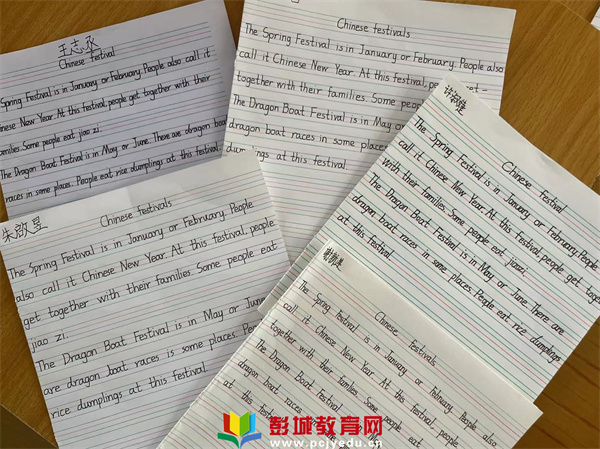 王志丞
Chinese festival
Spring Festival is in January or February. People also call it
nese New Year. At this festival, people get together with their
families. Some people eat jiao zi.
The Dragon Boat Festival is in May or June. There are dragon boat
races in some places. People eat rice dumplings at this festival.
Chinese festivals
The Spring Festival is in January or February. People also
call it Chinese New Year. At this festival, people get
together with their families. Some people
The Dragon Boat Festival is in May
dragon boat races in some places.
dumplings at this festival.
Chinese festival
The Spring Festival is in January or February. People
call it Chinese New Year. At this festival, people get together
with their families. Some people eat jiaozi.
The Dragon Boat Festival is in May or June. There are
dragon boat races in some places. People eat rice dumplings
at this festival.
朱啟昱
Chinese festivals
The Spring Festival is in January or February. People
also call it Chinese New Year. At this festival, people
get together with their families. Some people eat
jiao zi.
The Dragon Boat Festival is in May or
are dragon boat races is some places. Peo
rice dumplings at this festival.
Chinese festivals
The Spring Festival is in January or February. People also
call it Chinese New Year. At this festival, people
together with their families. Some people eat
The Dragon Boat Festival is in May
dragon boat races
at this festiv
彭城教育网
www.pcjyedu.cn